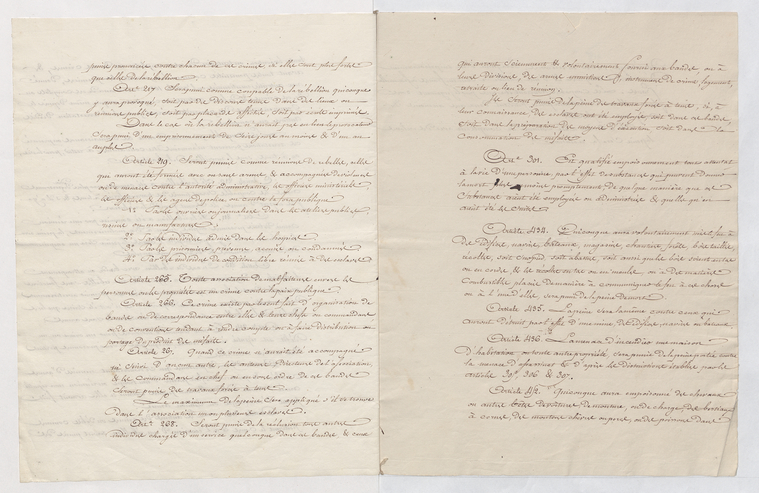 peine prononcée contre chacun de ces crimes si elle est plus forte
que celle de la rébellion.
Art. 217. Sera puni comme coupable de la rébellion quiconque
y aura provoqué, soit par de discours tenus dans des lieux ou
réunions publics, soit par placards affichés, soit par écrit imprimés.
Dans le cas où la rébellion n'aurait pas eu lieu le provocateur
sera puni d'un emprisonnement de six jours au moins & d'un an
au plus.
Article 219. Seront punies comme réunions de rebelles, celles
qui auront été formées avec ou sans armes & accompagnées de violences
ou de menaces contre l'autorité administrative, les officiers ministériels
les officiers & les agents de police ou contre la force publique
1° Par les ouvriers ou journaliers dans les ateliers publics,
usines ou manufactures;
2° Par les individus admis dans les hospices
3° Par les prisonniers, prévenus, accusés ou condamnés
4° Par des individus de condition libre réunis à des esclaves.
Article 265. Toute association de malfaiteurs envers les
personnes ou les propriétés est un crime contre la paix publique.
Article 266. Ce crime existe par le seul fait d'organisation de
bandes ou de correspondance entre elles & leurs chefs ou commandants
ou de conventions tendant à rendre compte ou à faire distribution ou
partage du produit des méfaits.
Article 267. Quand ce crime n'aurait été accompagné
ni suivi d'aucun autre, les auteurs, directeurs de l'association,
& les commandants en chef ou en sous ordre de ces bandes
seront punis des travaux forcés à tems.
Le maximum de la peine sera appliqué s'il se trouve
dans l'association un ou plusieurs esclaves.
Art. 268. Seront punis de la réclusion tous autres
individus chargés d'un service quelconque dans ces bandes, & ceux
qui auront sciemment & volontairement fourni aux bandes ou à
leurs divisions, des armes munitions, instruments de crime, logement,
retraite ou lieu de réunion.
Ils seront punis de la peine des travaux forcés à tems, si, à
leur connaissance des esclaves ont été employés, soit dans ces bandes,
soit dans la préparation des moyens d'exécution soit dans la
consommation des méfaits.
Art. 301. Est qualifié empoisonnement tout attentat
à la vie d'une personne, par l'effet de substances qui peuvent donner
la mort plus ou moins promptement de quelque manière que ces
substances aient été employées ou administrées & quelles qu'en
aient été les suites.
Article 434. Quiconque aura volontairement mis le feu à
des édifices, navires, bateaux, magasins, chantiers, forêts, bois taillis,
récoltes, soit sur pied, soit abattus, soit aussi que les bois soient en tas
ou en cordes, & les récoltes en tas ou en meules, ou à des matières
combustibles placées de manière à communiquer le feu à ces choses
ou à l'une d'elles, sera puni de la peine de mort.
Article 435. La peine sera la même contre ceux qui
auront détruit par l'effet d'une mine des édifices, navires ou bateaux.
Article 436. La menace d'incendier une maison
d'habitation ou toute autre propriété, sera punie de la peine portée contre
la menace d'assassinat & d'après les distinctions établies par les
articles 305, 306 & 307.
Article 452. Quiconque aura empoisonné des chevaux
ou autres bêtes de voiture, de monture, ou de charge, des bestiaux
à cornes, des moutons, chèvres ou porcs, ou des poissons dans